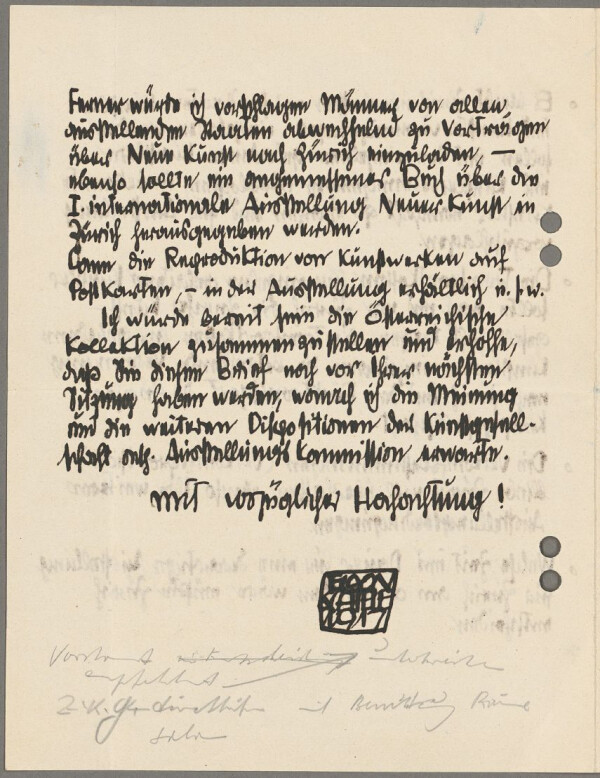 Ferner würde ich vorschlagen Männer von allen
ausstellenden Staaten abwechselnd zu Vorträgen
über Neue Kunst nach Zürich einzuladen, —
ebenso sollte ein angemessenes Buch über die
I. internationale Ausstellung Neuer Kunst in
Zürich herausgegeben werden.
Dann die Reproduktion von Kunstwerken auf
Postkarten, – in der Ausstellung erhältlich u. s. w.
Ich würde bereit sein die Österreichische
Kollektion zusammenzustellen und erhoffe,
daß Sie diesen Brief noch vor Ihrer nächsten
Sitzung haben werden, wonach ich die Meinung
und die weiteren Dispositionen der Kunstgesell-
schaft resp. Ausstellungskommission erwarte.
Mit vorzüglicher Hochachtung!
EGON
SCHIELE
1917
Vorstand
empfiehlt